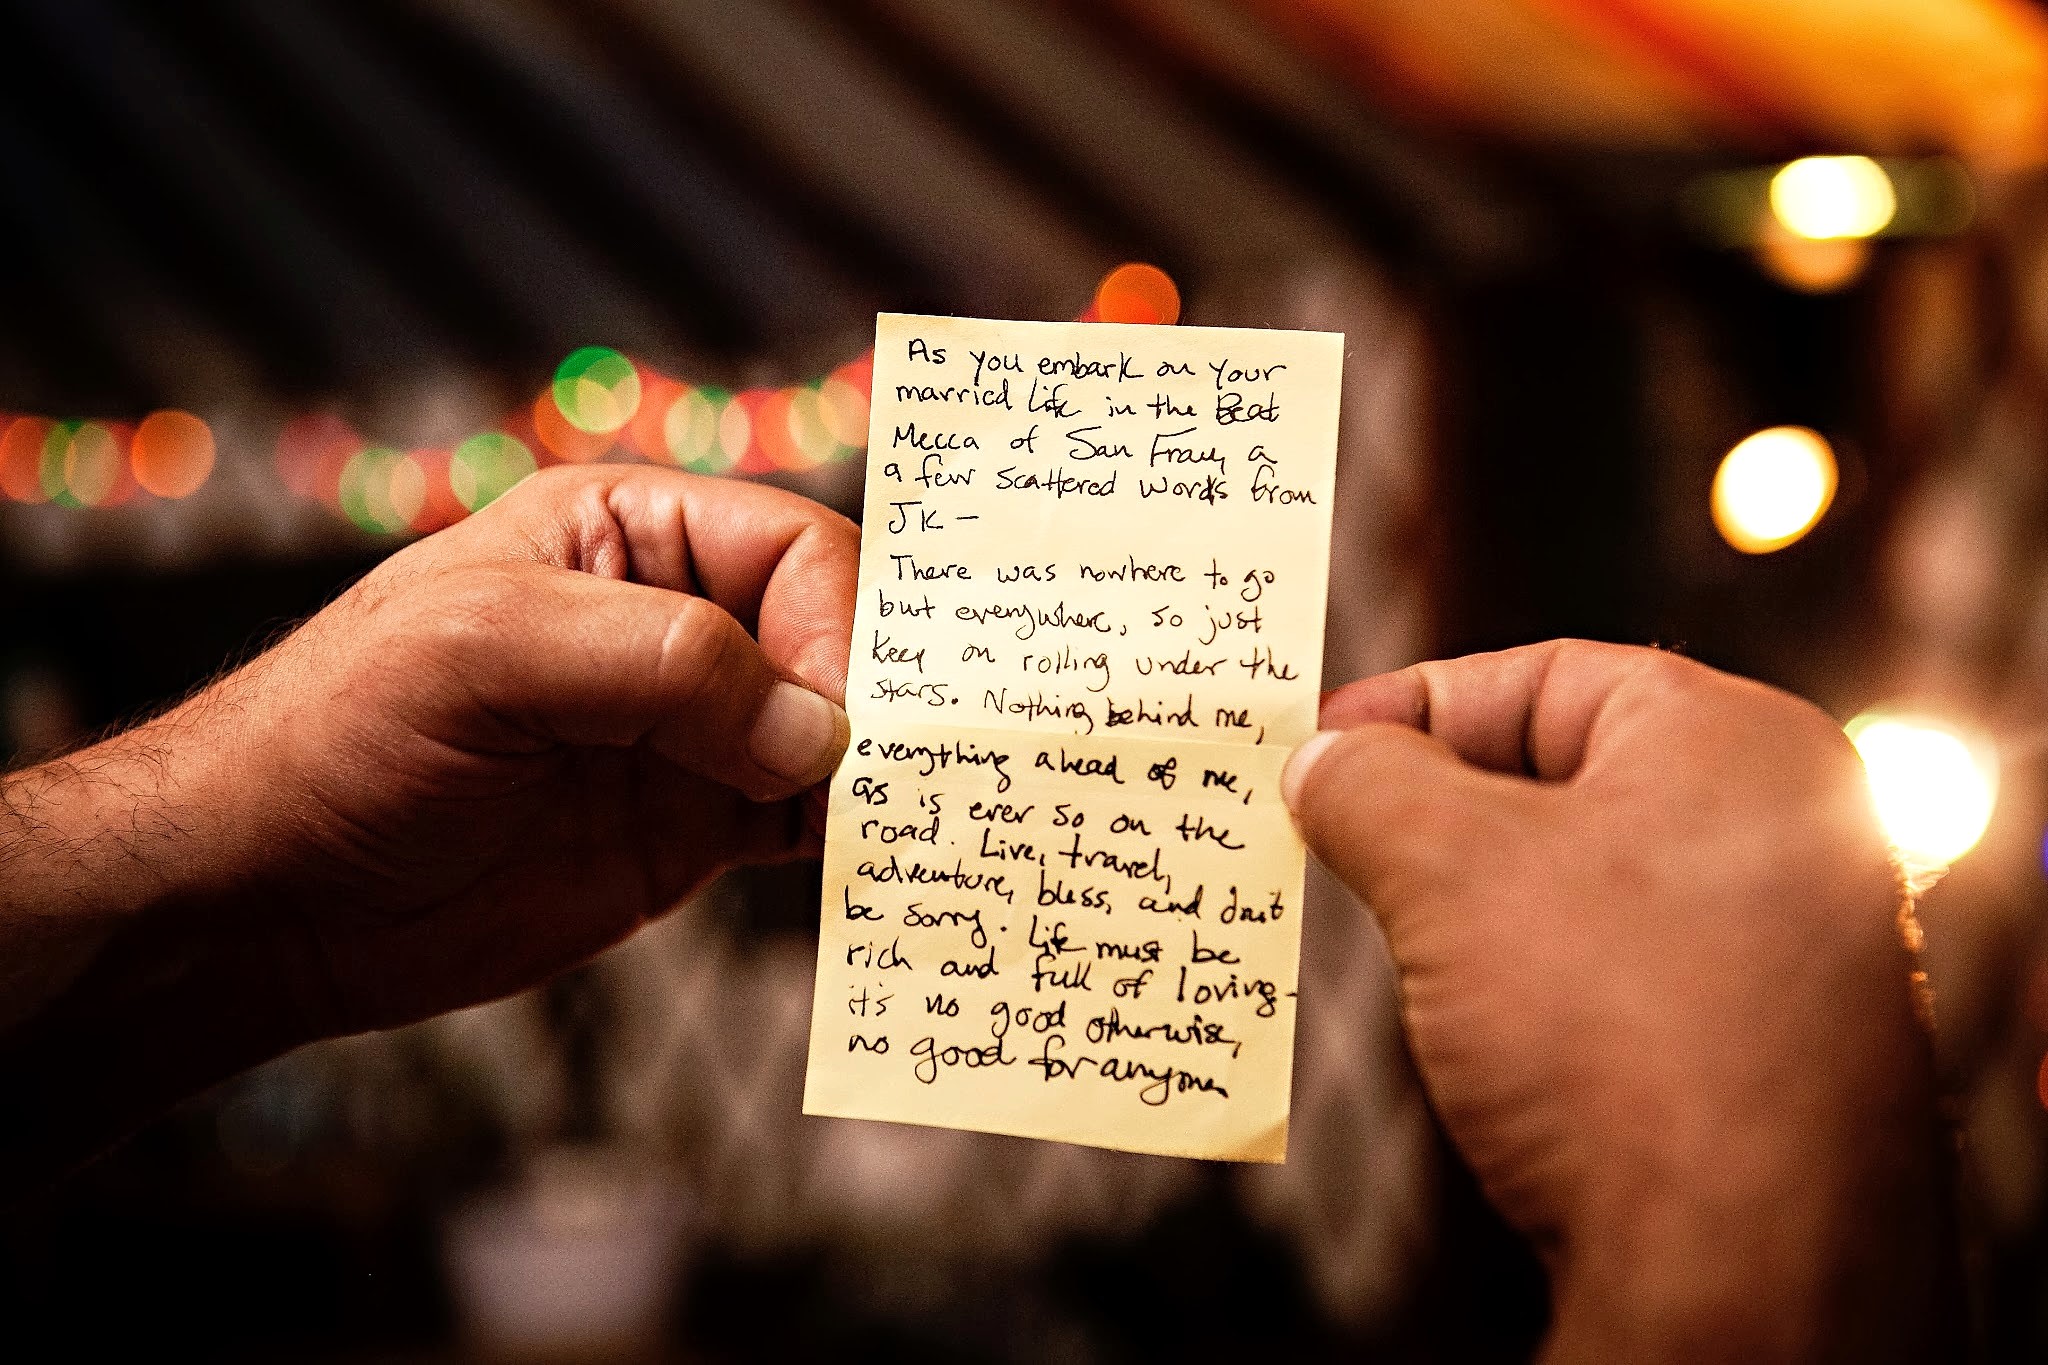 As you embark on your
married life in the Beat
Mecca of San Fran, a
a few scattered words from
JK -
There was nowhere to go
but everywhere, so just
keep on rolling under the
stars. Nothing behind me,
everything ahead of me,
as is ever so on the
road. Live, travel,
adventure, bless, and don't
be sorry. Life must be
rich and full of loving -
it's no good otherwise,
no good for anyone.